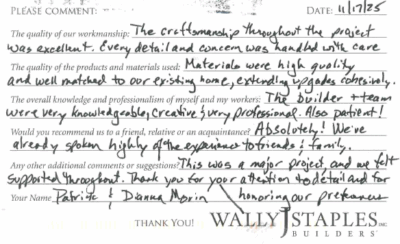 PLEASE COMMENT: DATE: 11/17/25
The quality of our workmanship: The craftsmanship throughout the project
was excellent. Every detail and concern was handled with care
The quality of the products and materials used: Materials were high quality
and well matched to our existing home, extending upgrades cohesively.
The overall knowledge and professionalism of myself and my workers: The builder + team
were very knowledgeable, creative & very professional. Also patient!
Would you recommend us to a friend, relative or an acquaintance? Absolutely! We've
already spoken highly of the experience to friends & family.
Any other additional comments or suggestions? This was a major project, and we felt
supported throughout. Thank you for your attention to detail and for
Your Name Patrick & Dianna Morin honoring our preferences
THANK YOU! WALLY J STAPLES INC.
BUILDERS